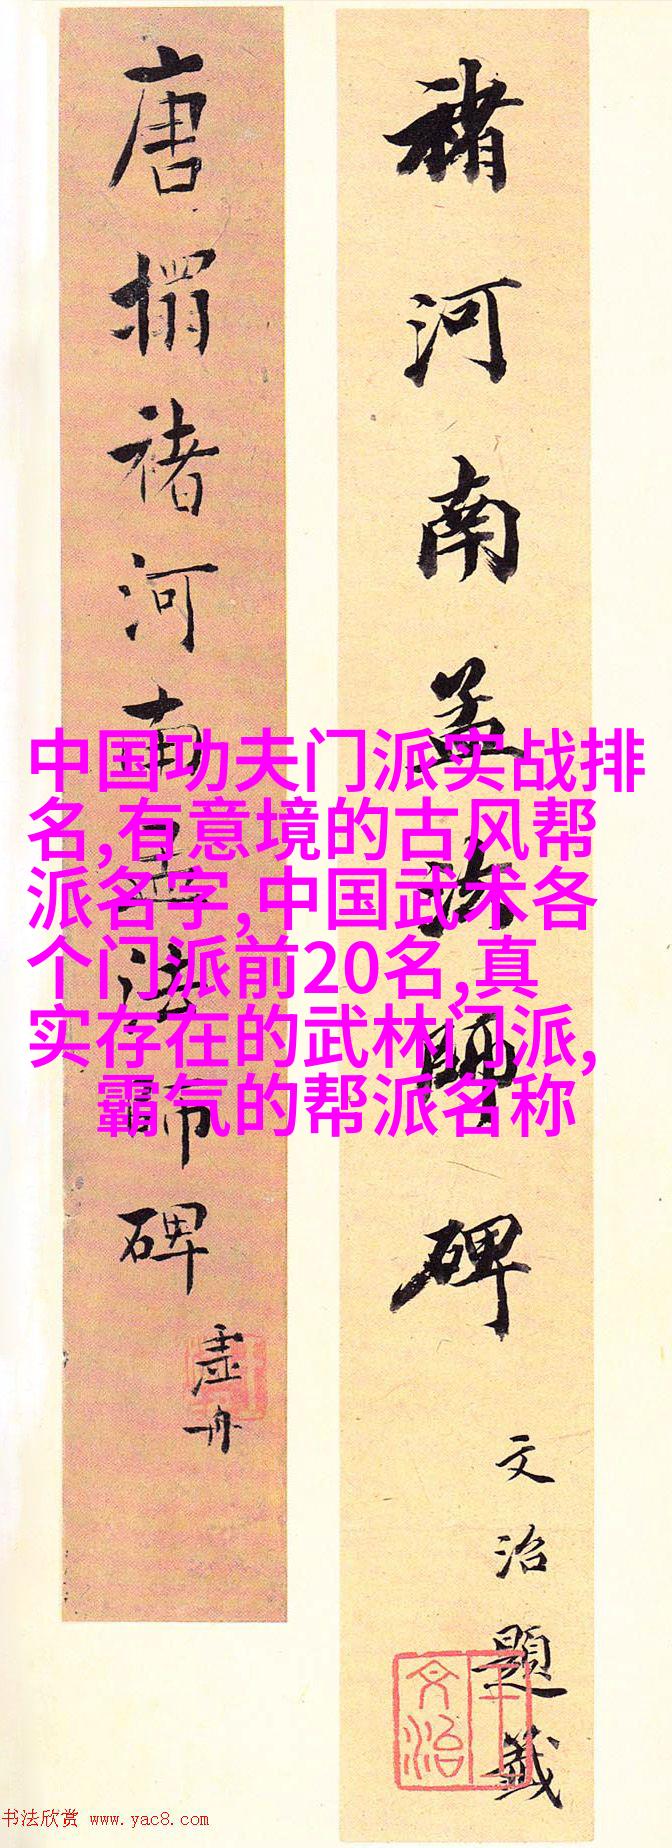 褚河南孟法師碑
文治題籤
王文治
唐搨褚河南孟法師碑
虛舟
中国功夫门派实战排
名,有意境的古风帮
派名字,中国武术各
个门派前20名,真
实存在的武林门派,
霸气的帮派名称
书法欣赏 www.yac8.com